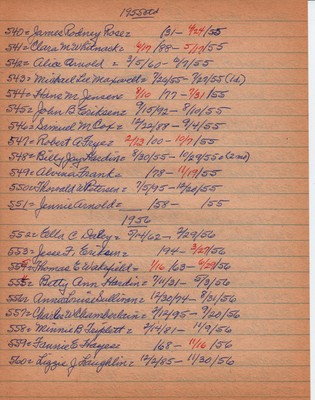 1955 ctd
540 = James Rodney Rose = /31 - 4/24/55
541 = Clara M. Whitnack = 4/7/88 - 5/17/55
542 = Alice Arnold = 2/5/60 - 6/7/55
543 = Michael Lee Maxwell = 7/26/55 - 7/27/55 (1d.)
544 = Hans M. Jensen = 8/10 /77 - 7/31/55
545 = John B. Eriksen = 9/15/92 - 8/10/55
546 = Samuel M. Cox = 12/22/88 - 9/4/55
547 = Robert A. Frye = 2/23/00 - 10/7/55
548 = Billy Jay Hardin = 8/30/55 - 10/29/55 = (2 mo)
549 = Alvina Frank = /78 - 11/19/55
550 = Thorvald W. Petersen = 7/5/45 - 12/20/55
551 = Jennie Arnold = /58 - /55
1956
552 = Ella C. Daley = 5/14/62 - 2/29/56
553 = Jess F. Eriksen = 194 - 3/27/56
554 = Thomas E. Wakefield = 1/16 /63 - 4/29/56
555 = Betty Ann Hardin = 7/11/31 - 5/3/56
556 = Annie Louise Sullivan = 12/30/74 - 8/31/56
557 = Charles W. Chamberlain = 9/12/95 - 9/20/56
558 = Minnie B. Triplett = 2/14/81 - 11/9/56
559 = Fannie E. Hayes = /68 - 11/16 /56
560 = Lizzie J. Laughlin = 12/2/85 - 11/30/56